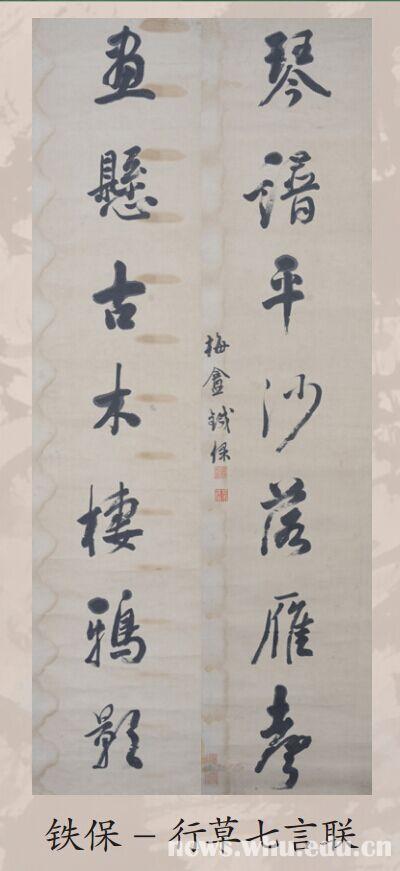 琴譜平沙落雁聲
畫懸古木棲鴉影
梅盦鐵保
铁保 – 行草七言联
news.whu.edu.cn